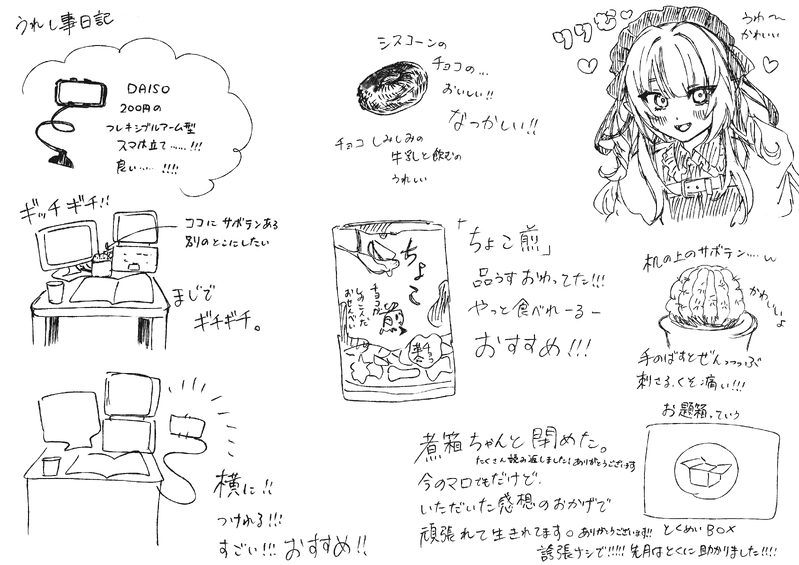 うれし事日記
DAISO
200円の
フレキシブルアーム型
スマホ立て……!!!
良い……!!!!
ギッチギチ!!
ココに サボテンある
別のとこにしたい
まじで
ギチギチ。
横に!!
つけれる!!!
すごい!!! おすすめ!!
シスコーンの
チョコの…
おいしい!!
なつかしい!!
チョコ しみしみの
牛乳と飲むの
うれしい
「ちょこ煎」
品うす おわってた!!!
やっと食べれーるー
おすすめ!!!
ちょこ
煎
チョコが
しみこんだ
おせんべい
りりむ
うわ〜
かわいい
机の上のサボテン…
かわいいよ
手のばすとぜんっっっぶ
刺さる。くそ痛い!!!
お題箱、ていう
とくめいBOX
煮箱ちゃんと閉めた。
たくさん読み返しました!ありがとうございます
今のマロでもだけど、
いただいた感想のおかげで
頑張れて生きれてます。ありがとうございます!!
誇張ナシで!!!!! 先月はとくに助かりました!!!!